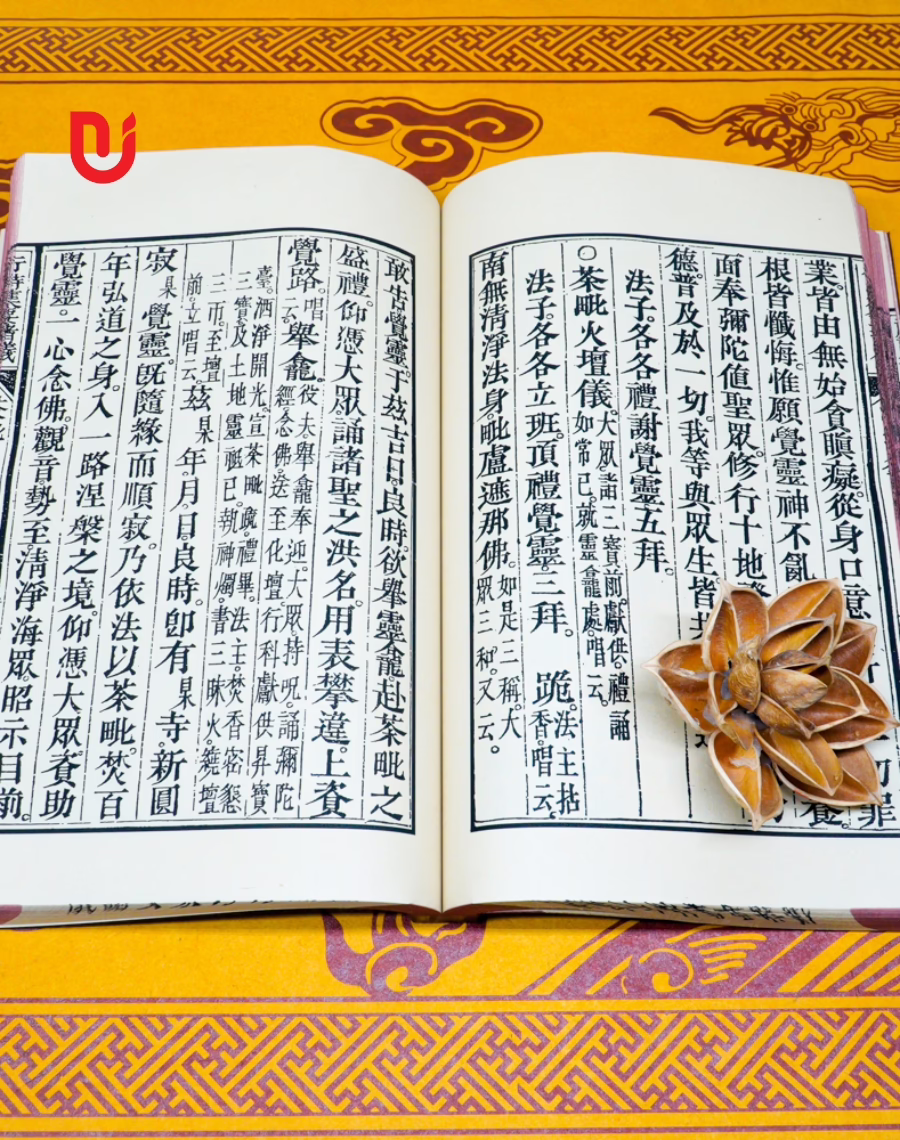 業。皆由無始貪瞋癡。從身口意
罪
根皆懺悔。惟願覺靈神不亂
面奉彌陀值聖眾。修行十地
養。
德。普及於一切。我等與眾生。皆共
法子。各各禮謝覺靈五拜。
○茶毗火壇儀。大眾諸三寶前。獻供。禮誦
如常已。就靈龕處。唱云。
法子。各各立班。頂禮覺靈三拜。跪。法主拈
香。唱云。
南無清淨法身毗盧遮那佛。如是三稱。大
眾三和。又云。
敢告覺靈。于茲吉日。良時。欲舉靈龕。赴茶毗之
盛禮。仰憑大眾。誦諸聖之洪名。用表攀違。上資
覺路。唱云。舉龕。役夫。舉龕奉迎。大眾。持呪。誦彌陀
經。念佛。送至化壇。行科。獻供。昇寶
臺。洒淨開光。宣茶毗疏。禮畢。法主。焚香。密懇
三寶。及土地靈祇已。執神燭。書三昧火。遶壇
三帀。至壇
前。立唱云。茲某年。月。日。良時。卽有某寺。新圓
寂某覺靈。旣隨緣而順寂。乃依法以茶毗。焚百
年弘道之身。入一路涅槃之境。仰憑大眾。資助
覺靈。一心念佛。觀音勢至。清淨海眾。昭示目前。